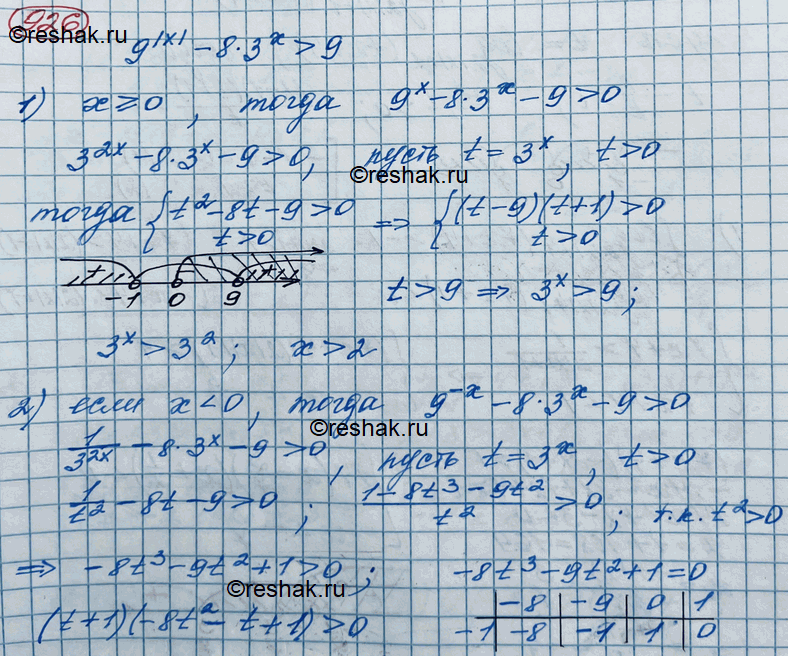 926
©reshak.ru
9^|x| - 8·3^x > 9
1) x ≥ 0, тогда 9^x - 8·3^x - 9 > 0
3^2x - 8·3^x - 9 > 0, пусть t = 3^x, t > 0
©reshak.ru
тогда { t^2 - 8t - 9 > 0 ⇒ { (t - 9)(t + 1) > 0
t > 0 t > 0
+ - +
-1 0 9 t > 9 ⇒ 3^x > 9;
3^x > 3^2; x > 2
2) если x < 0, тогда 9^-x - 8·3^x - 9 > 0
©reshak.ru
1/3^2x - 8·3^x - 9 > 0, пусть t = 3^x, t > 0
1/t^2 - 8t - 9 > 0; (1 - 8t^3 - 9t^2)/t^2 > 0; т.к. t^2 > 0
⇒ -8t^3 - 9t^2 + 1 > 0; -8t^3 - 9t^2 + 1 = 0
©reshak.ru
(t + 1)(-8t^2 - t + 1) > 0
| -8 | -9 | 0 | 1
-1 | -8 | -1 | 1 | 0